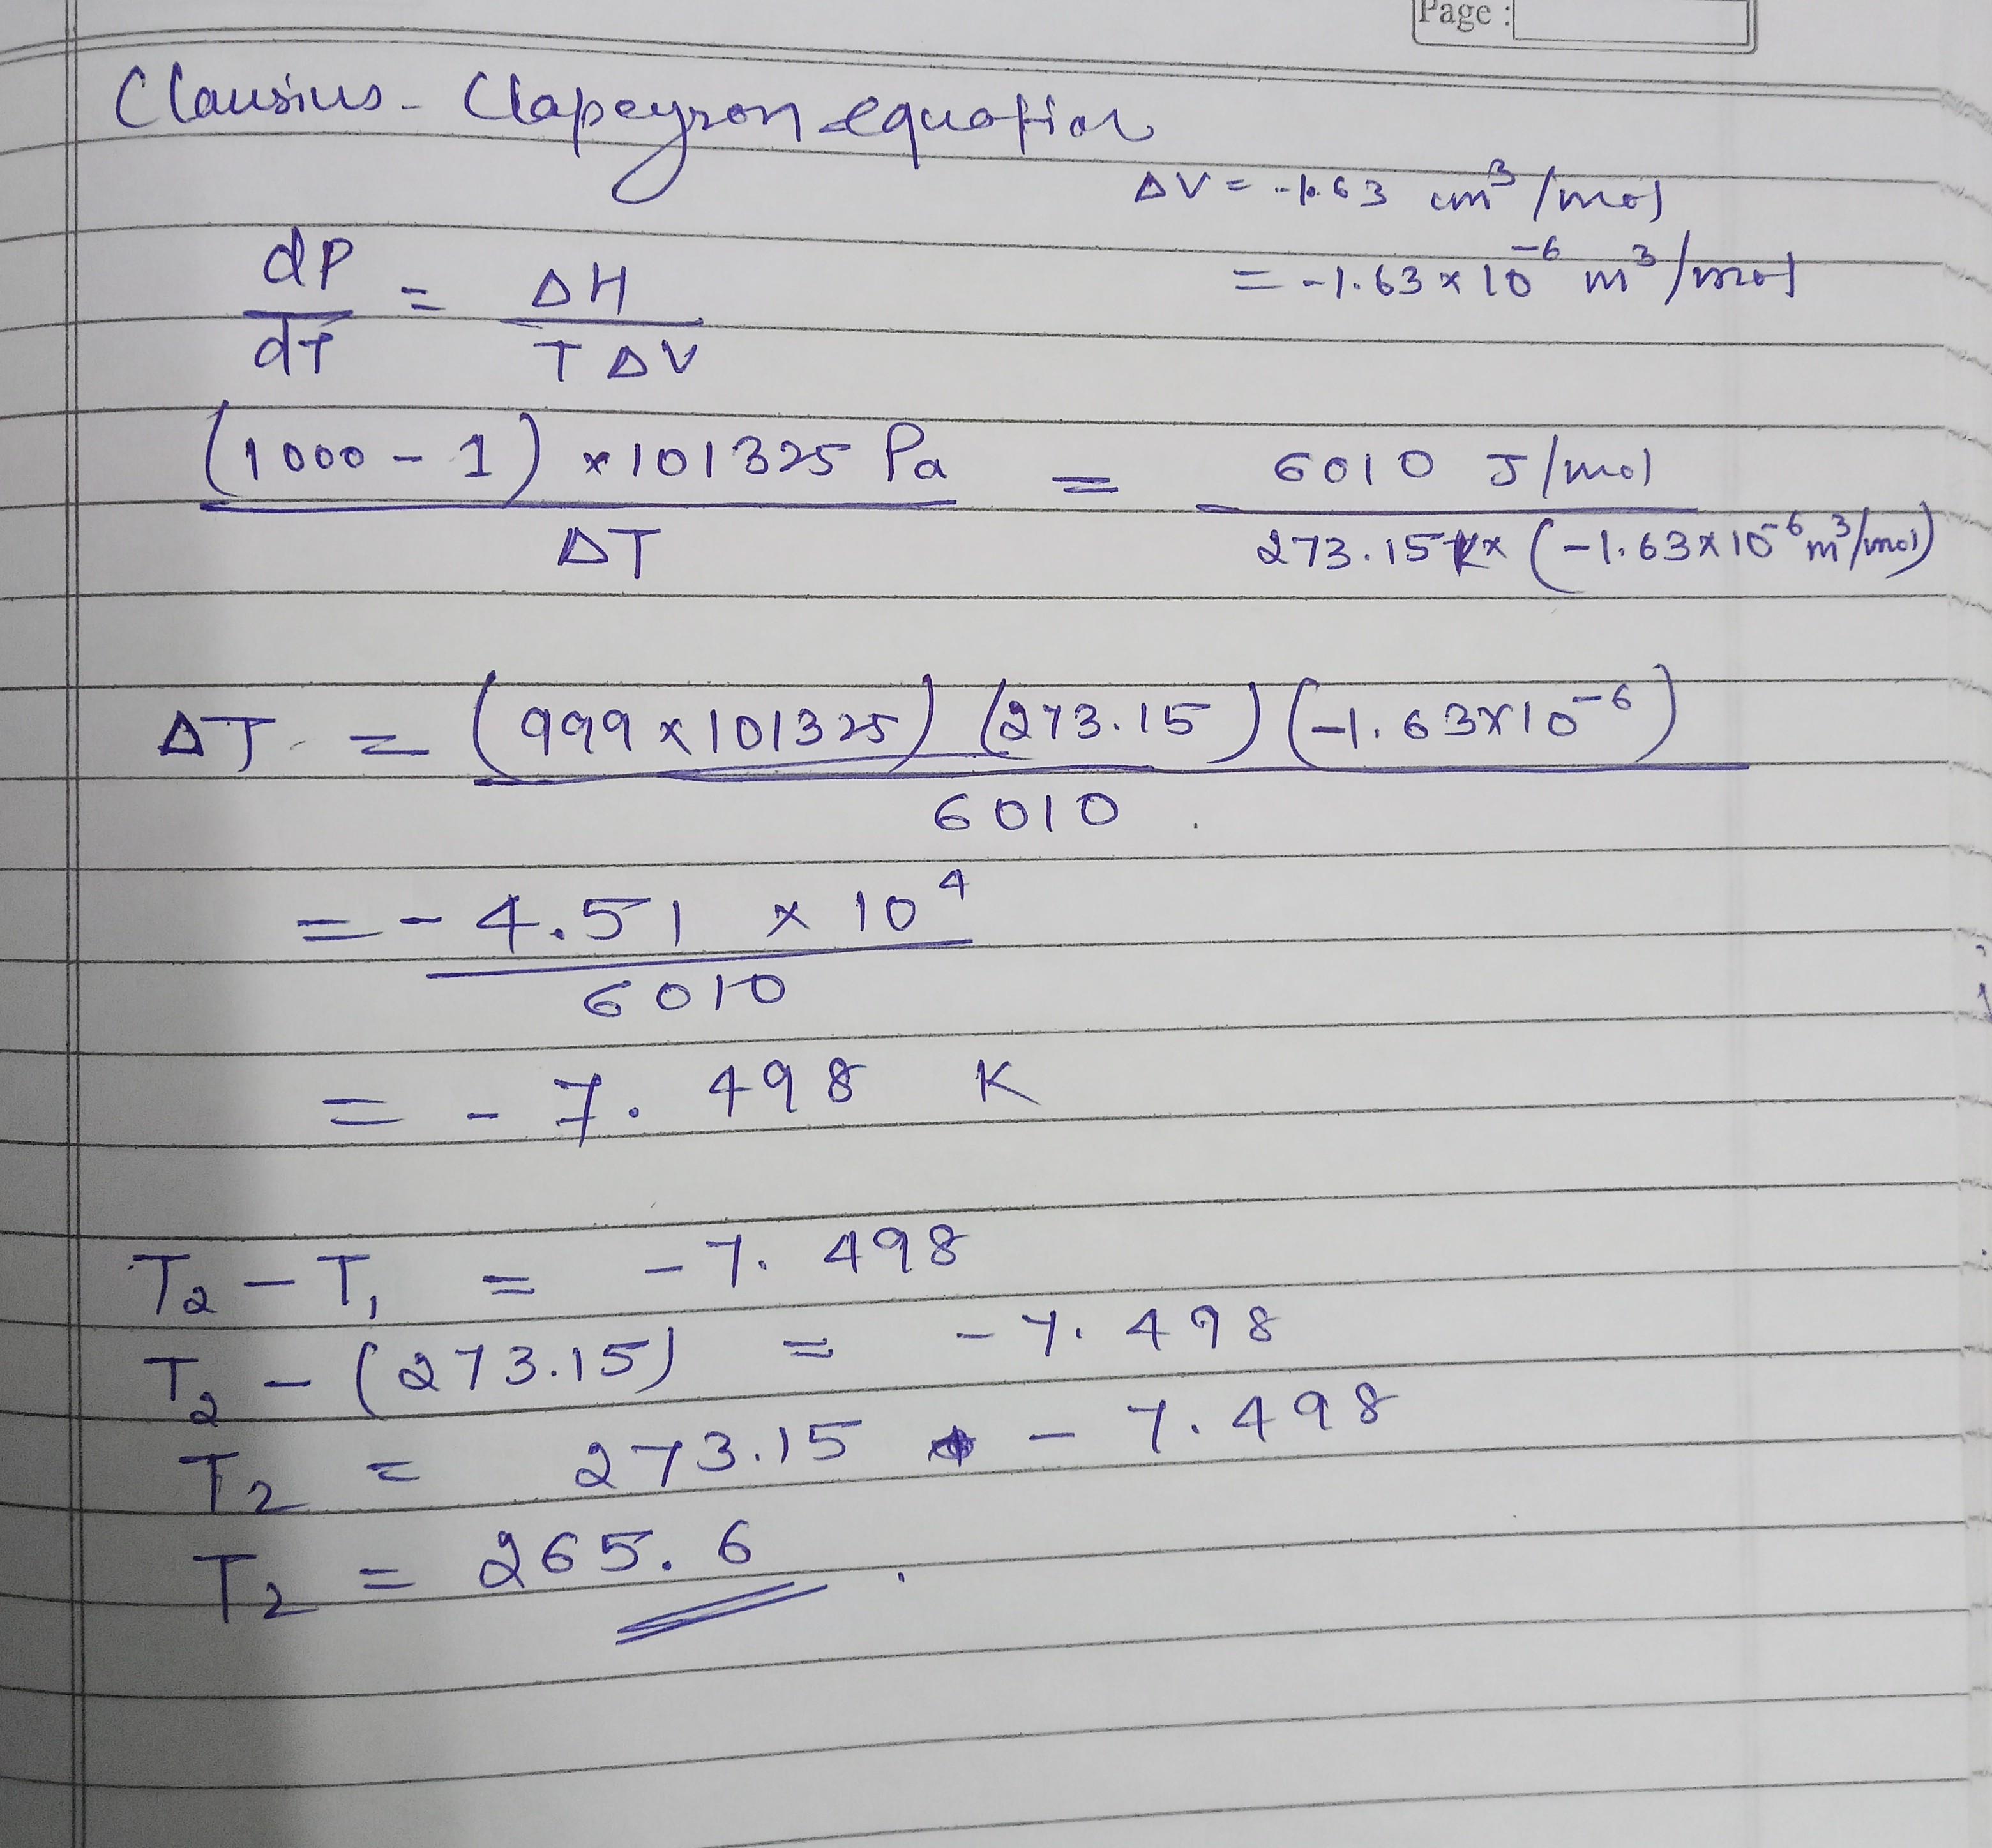 Page :
Clausius - Clapeyron equation
ΔV = -1.63 cm³/mol
= -1.63 x 10⁻⁶ m³/mol
dP/dT = ΔH/TΔV
(1000 - 1) x 101325 Pa / ΔT = 6010 J/mol / 273.15K x (-1.63 x 10⁻⁶ m³/mol)
ΔT = (999 x 101325) (273.15) (-1.63x10⁻⁶) / 6010
= - 4.51 x 10⁴ / 6010
= - 7.498 K
T₂ - T₁ = - 7.498
T₂ - (273.15) = - 7.498
T₂ = 273.15 - 7.498
T₂ = 265.6